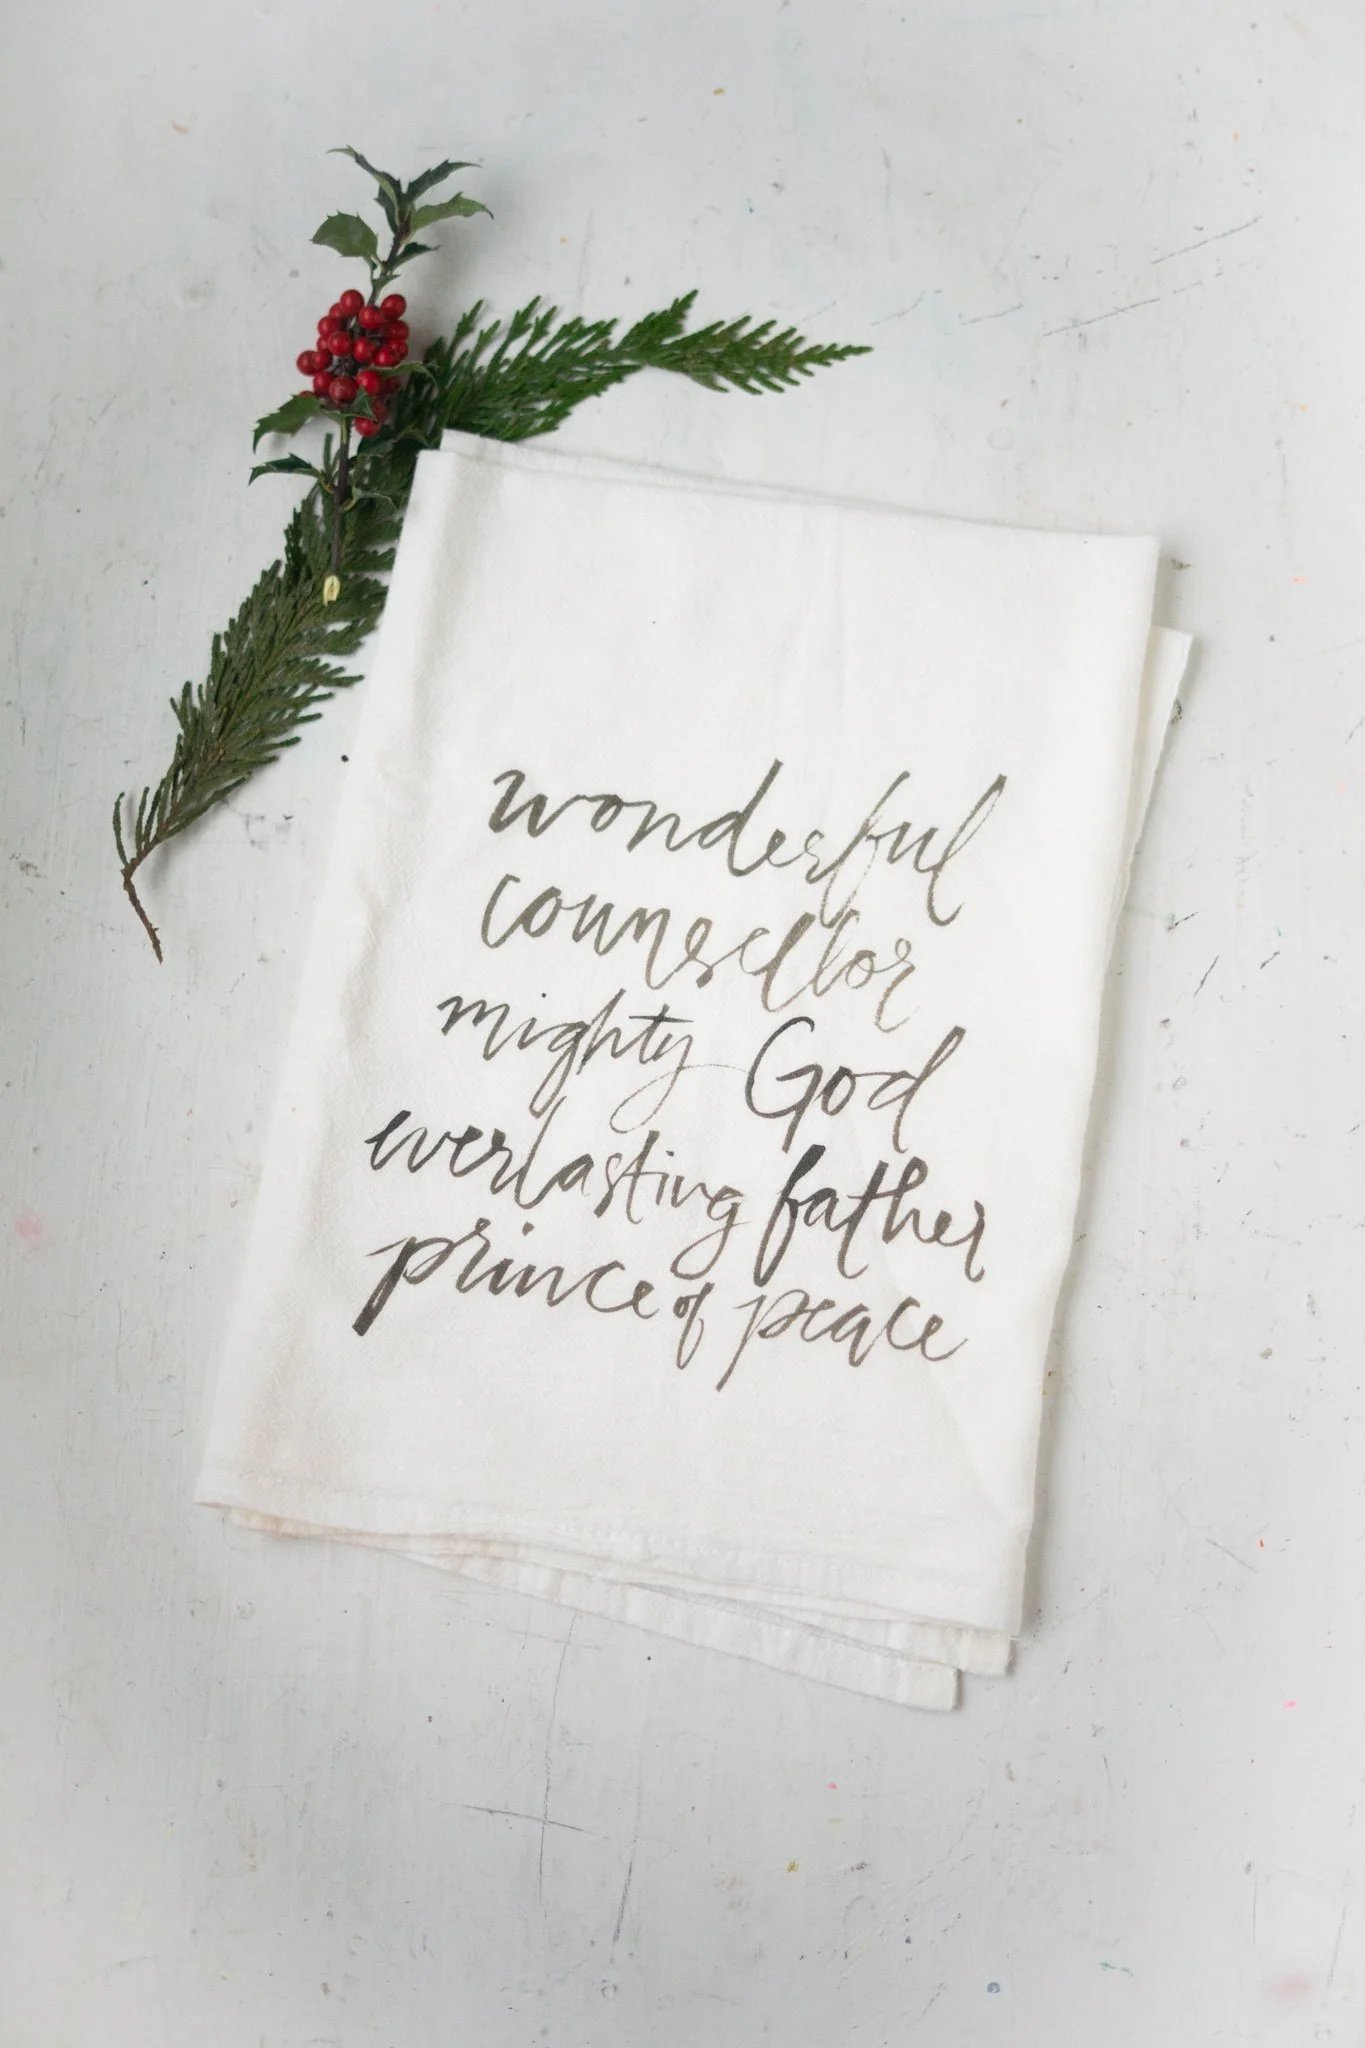 wonderful
counsellor
mighty God
everlasting father
prince of peace